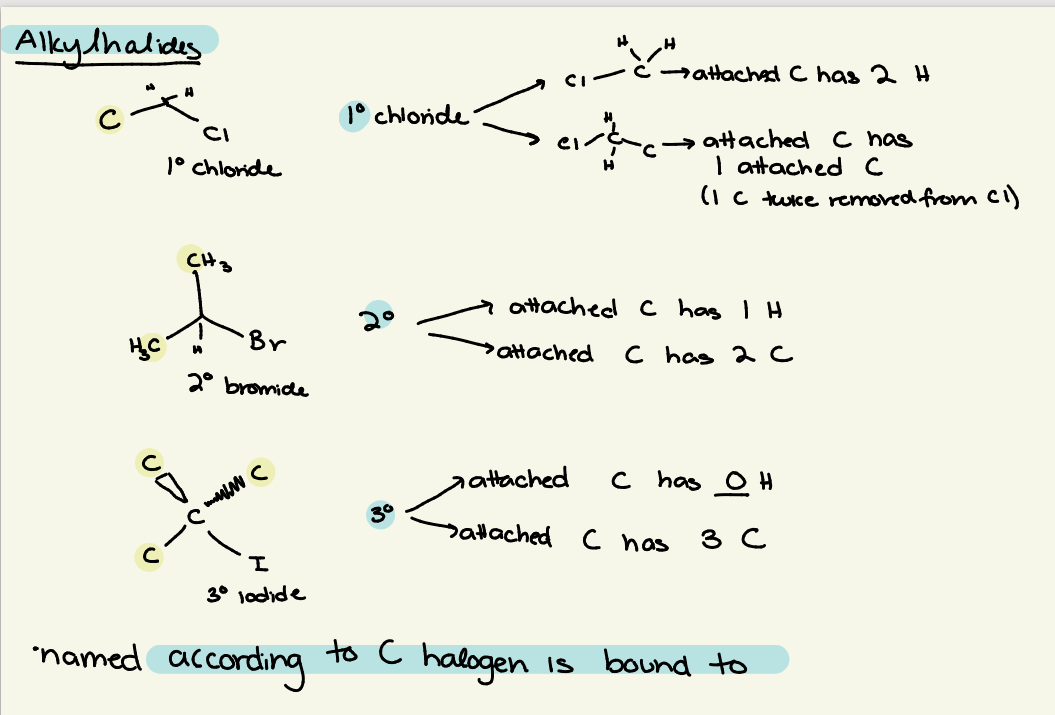 Alkylhalides
H H
C
Cl
1° chloride
1° chloride
H H
Cl C → attached C has 2 H
H
Cl C C → attached C has
H
1 attached C
(1 C twice removed from Cl)
CH3
H3C H Br
2° bromide
2°
attached C has 1 H
attached C has 2 C
C C
C
C I
3° iodide
3°
attached C has 0 H
attached C has 3 C
·named according to C halogen is bound to